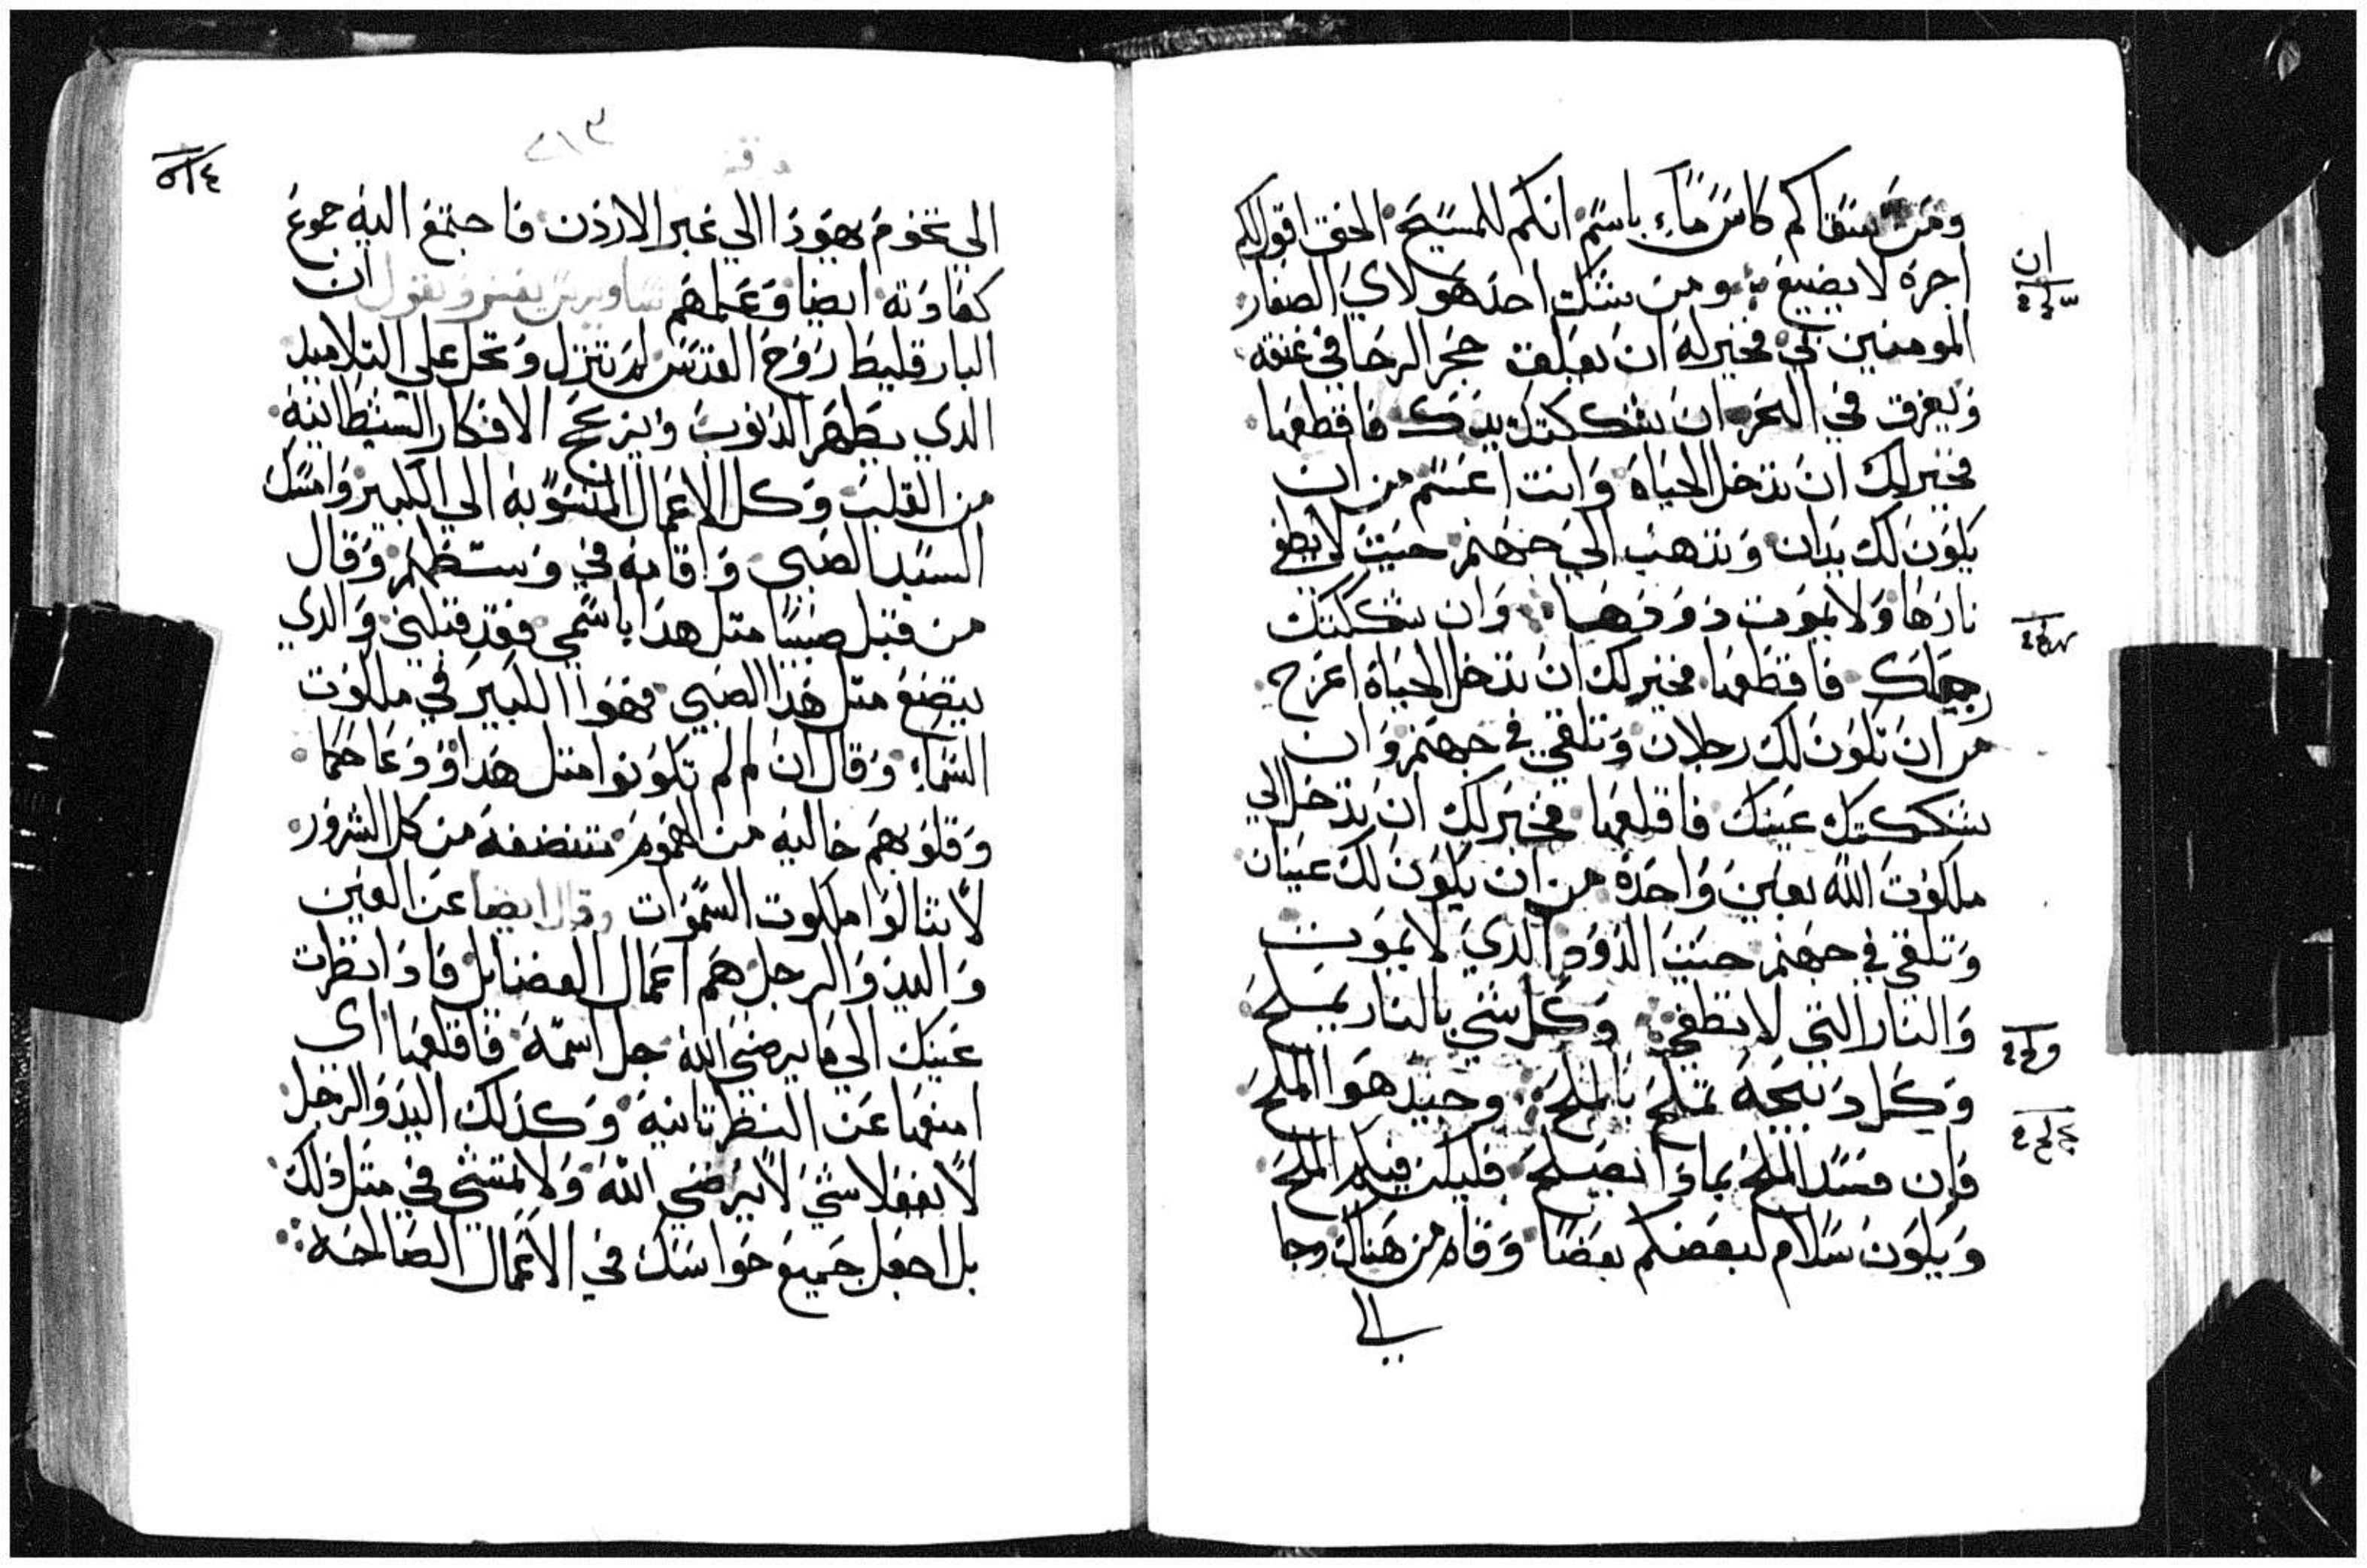 ومن سقاكم كاس ماء باسم انكم للمسيح الحق اقول لكم
اجره لا يضيع ومن شكك احد هولاي الصغار
المومنين بي فخير له ان يعلق حجر الرحا في عنقه
ويغرق في البحر ان شككتك يدك فاقطعها
فخير لك ان تدخل الحياة وانت اعسم من ان
يكون لك يدان وتذهب الي جهنم حيث لا تطفي
نارها ولا يموت دودها وان شككتك
رجلك فاقطعها فخير لك ان تدخل الحياة اعرج
من ان تكون لك رجلان وتلقي في جهنم وان
شككتك عينك فاقلعها فخير لك ان تدخل الي
ملكوت الله بعين واحدة من ان يكون لك عينان
وتلقي في جهنم حيث الدود الدي لا يموت
والنار التي لا تطفي وكل شي بالنار يملح
وكل دبيحة تملح بالملح وجيد هوا الملح
فان فسد الملح بمادا يصلح فليكن فيكم الملح
ويكون سلام لبعضكم بعضا وقام من هناك وجا
الي
الي تخوم يهودا الي عبر الاردن فاجتمع اليه جموع
كعادته ايضا وعلمهم يفسر ويقول ان
البارقليط روح القدس لم تنزل وتحل علي التلاميد
الدي يطهر الدنوب ويزعج الافكار الشيطانية
من القلب وكل الاعمال المنسوبة الي الكبير وامسك
السيد الصبي واقامه في وسطهم وقال
من قبل صبيا متل هدا باسمي فقد قبلني والدي
يتضع متل هدا الصبي فهوا الكبير في ملكوت
السماء وقال ان لم تكونوا متل هدا
وقلوبهم خالية من الهموم من كل الشرور
لا تنالوا ملكوت السموات وقال ايضا عن العين
واليد والرجل هم اعمال الفضايل فادا نظرت
عينك الي ما يرضي الله جل اسمه فاقلعها اي
امنعها عن النظر تانية وكدلك اليد والرجل
لا تفعلا شي لا يرضي الله ولا تمشي في متل دلك
بل اجعل جميع حواسك في الاعمال الصالحه